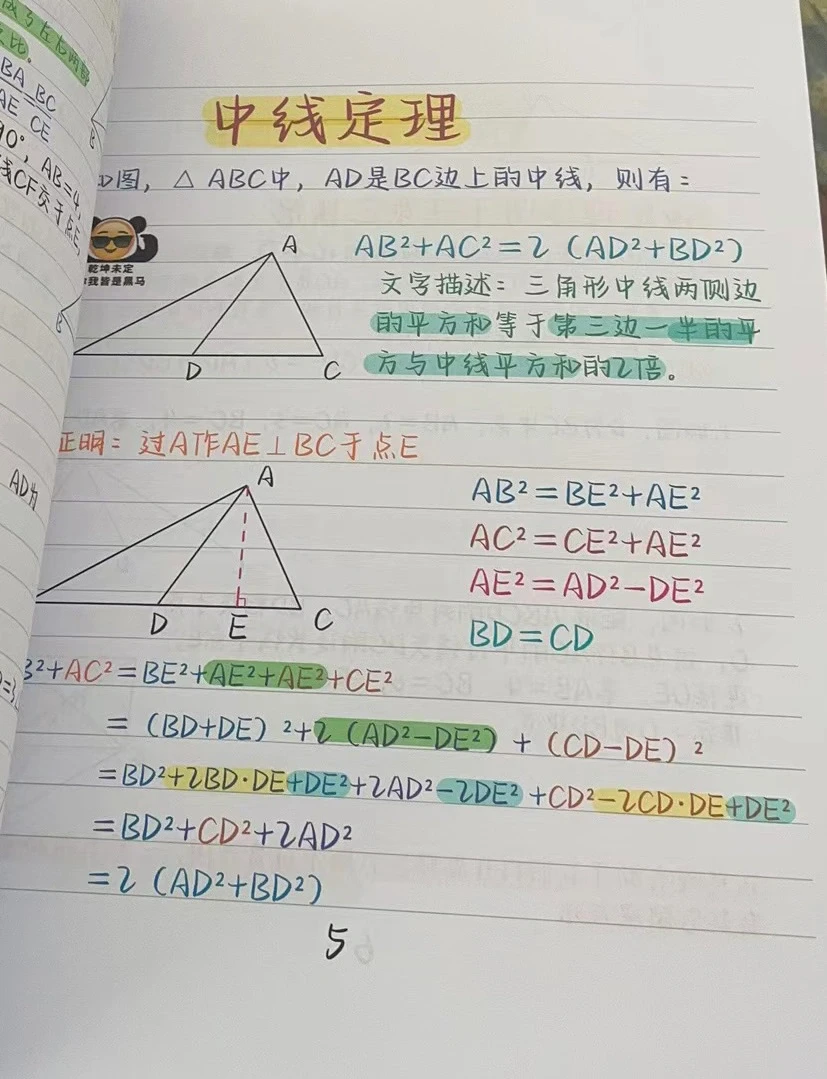 BA BC
AE CE
90°, AB=4,
线CF交于点E
AD为
中线定理
图, △ ABC中, AD是BC边上的中线, 则有:
乾坤未定
我皆是黑马
A
D
C
AB²+AC²=2 (AD²+BD²)
文字描述: 三角形中线两侧边
的平方和等于第三边一半的平
方与中线平方和的2倍。
证明: 过A作AE⊥BC于点E
A
D
E
C
AB²=BE²+AE²
AC²=CE²+AE²
AE²=AD²-DE²
BD=CD
B²+AC²=BE²+AE²+AE²+CE²
= (BD+DE) ²+2 (AD²-DE²) + (CD-DE) ²
=BD²+2BD·DE+DE²+2AD²-2DE²+CD²-2CD·DE+DE²
=BD²+CD²+2AD²
=2 (AD²+BD²)
5